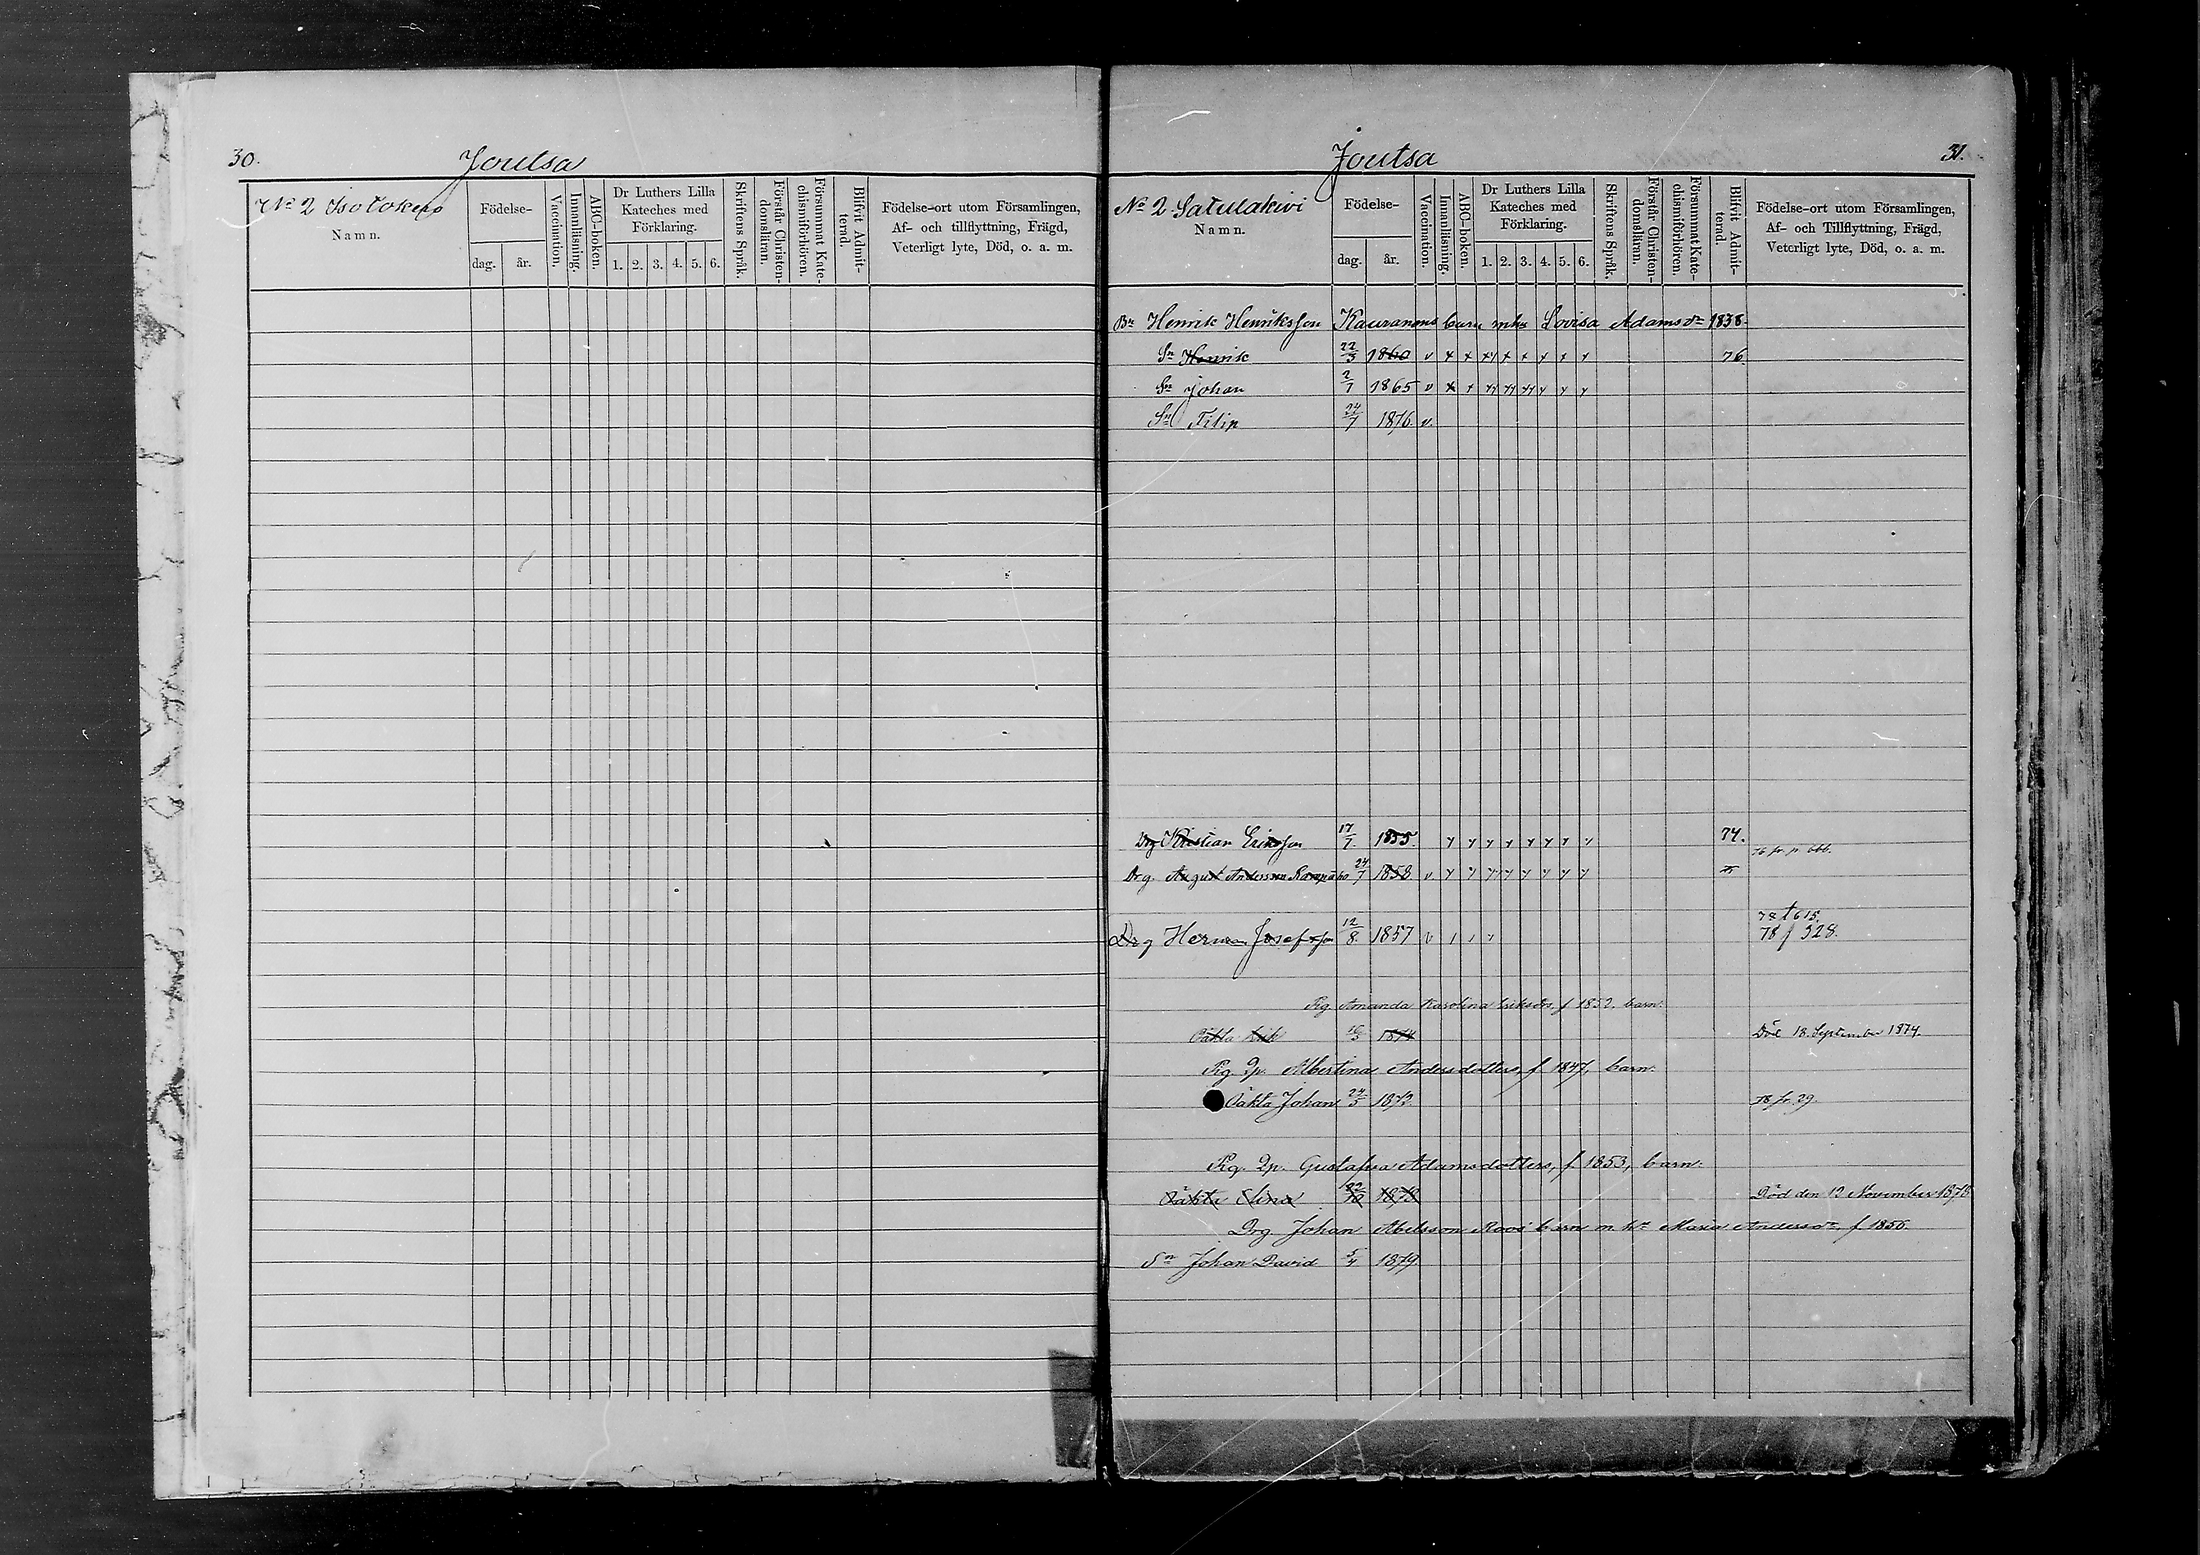 30.
Joutsa
No 2 Isotokero
Namn.
Födelse-
dag.
år.
Vaccination.
Innanläsning.
ABC-boken.
Dr Luthers Lilla
Kateches med
Förklaring.
1. 2. 3. 4. 5. 6.
Skriftens Språk.
Förstår Christen-
domsläran.
Försummat Kate-
chismiförhören.
Blifvit Admit-
terad.
Födelse-ort utom Församlingen,
Af- och tillflyttning, Frägd,
Veterligt lyte, Död, o. a. m.
Joutsa
31.
No 2 Satulakivi
Namn.
Födelse-
dag.
år.
Vaccination.
Innanläsning.
ABC-boken.
Dr Luthers Lilla
Kateches med
Förklaring.
1. 2. 3. 4. 5. 6.
Skriftens Språk.
Förstår Christen-
domsläran.
Försummat Kate-
chismiförhören.
Blifvit Admit-
terad.
Födelse-ort utom Församlingen,
Af- och Tillflyttning, Frägd,
Veterligt lyte, Död, o. a. m.
Bn Henrik Henriksson Kauranens barn mhu Lovisa Adamsdr 1838.
Sn Henrik 22/3 1860 v x x xy x x y x y 76
Sn Johan 2/7 1865 v x x yy yy yy y y y
Sn Filip 24/7 1876 v.
Drg Kristian Eriksson 17/7 1855. y y y y y y y y 74.
76 fr. p. 666.
Drg. August Andersson 24/7 1858 v y y yy y y y y 75
Drg Herman Josefsson 12/8 1857 v
78 t 615.
78 f 328.
Pig. Amanda Karolina Eriksdrs, f 1852, barn:
Oäkta Erik 16/3 1874 Död 18. September 1874.
Pig. Qp. Albertina Andersdotters, f 1847, barn:
Oäkta Johan 24/5 1872. 78 fr. 29.
Pig. Qp. Gustafva Adamsdotters, f. 1853, barn:
Oäkta Elina 22/10 1878 Död den 12 November 1878
Drg. Johan Abelsson Roos barn m. hu Maria Andersdr, f 1856.
Sn Johan David 5/4 1879